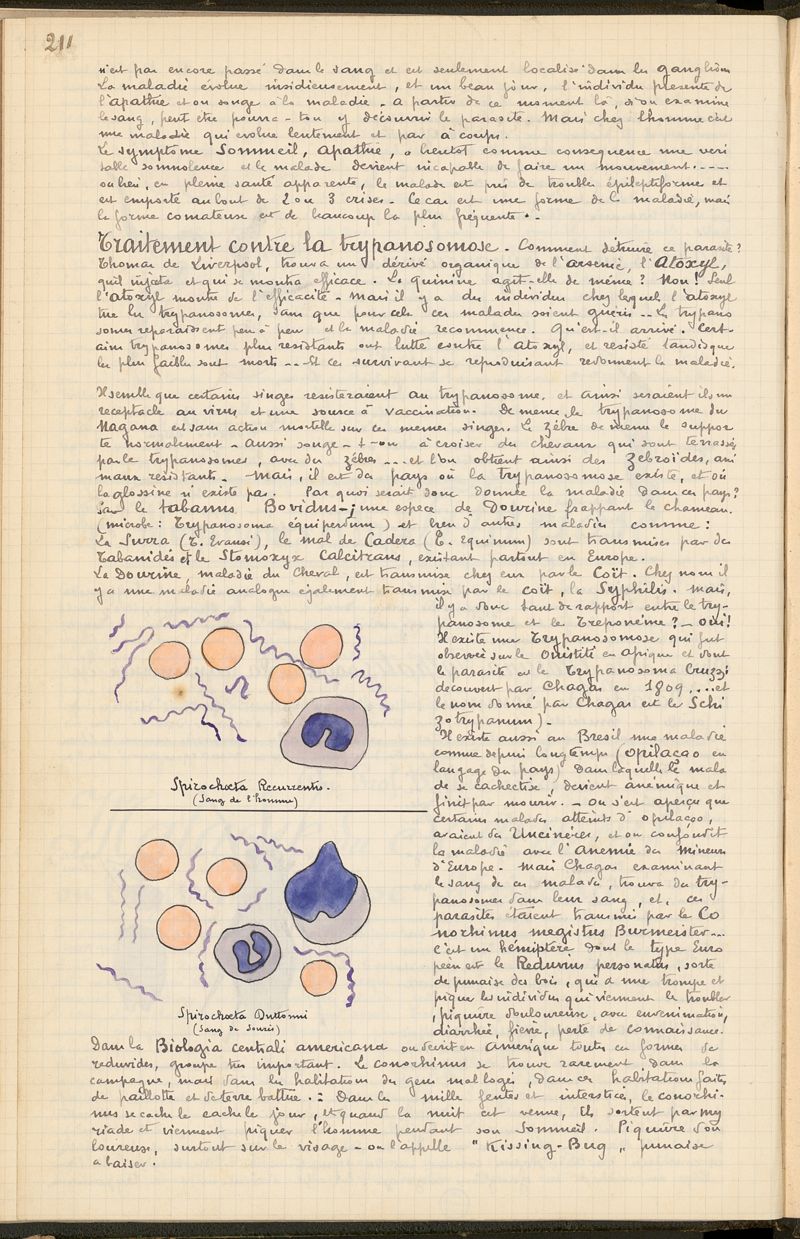 211
n'est pas encore passé dans le sang et est seulement localisé dans les ganglions
La maladie évolue insidieusement, et un beau jour, l'individu présente de
l'apathie et on songe à la maladie - a partir de ce moment là, si on examine
le sang, peut être pourra-t-on y découvrir le parasite. Mais chez l'homme c'est
une maladie qui évolue lentement et par à coups.
Le symptôme Sommeil, apathie, a bientôt comme conséquence une veri
table somnolence et le malade devient incapable de faire un mouvement.----
ou bien, en pleine santé apparente, le malade est pris de troubles épileptiformes et
est emporté au bout de 2 ou 3 crises. Ce cas est une forme de la maladie, mais
la forme comateuse est de beaucoup la plus fréquente.-
Traitement contre la trypanosomose. Comment détruire ce parasite?
Thomas de Liverpool, trouva un dérivé organique de l'arsenic, l'Atoxyl,
qu'il injecta et qui se montra efficace. La quinine agit-elle de même? Non! Seul
l'atoxyl montre de l'efficacité - Mais il y a des individus chez lesquels l'atoxyl
tue les trypanosomes, sans que pour cela ces malades soient guéris -- Les trypano
somes reparaissent peu à peu et la maladie recommence. Qu'est-il arrivé. Cert-
ains trypanosomes plus resistants ont lutté contre l'Atoxyl, et resisté tandisque
les plus faibles sont morts -- Et ces survivant se reproduisant redonnent la maladie.
Il semble que certains singes resisteraient au trypanosome, et ainsi seraient ils un
receptacle au virus et une source à vaccination. De meme le trypanosome du
Nagana est sans action mortelle sur ces memes singes. Le zébre de même le suppor
te normalement - aussi songe-t-on à croiser des chevaux qui sont terrassés
par le trypanosomes, avec des zébres --- et l'on obtient ainsi des Zebroïdes, ani
maux resistants. - Mais, il est des pays où la trypanosomose existe, et où
la glossine n'existe pas. Par quoi serait donc donnée la maladie dans ces pays?
Par le tabanus Bovidus-; une espece de Dourine frappant le chameau.
(microbe: Trypanosoma équiperdum) et bien d'autres maladies comme:
La Surra (T. Evansi), le mal de Cadera (T. equinum) sont transmises par des
Tabanidés et le Stomoxyx Calcitrans, existant partout en Europe.
La Dourine, maladie du Cheval, est transmise chez eux par le Coït. Chez nous il
y a une maladie analogue également transmise par le coït, la Syphilis. Mais,
il y a donc tant de rapport entre le try-
panosome et le Treponème? - oui!
Il existe une Trypanosomose qui fut
observée sur le Ouistiti en Afrique et dont
le parasite est le Trypanosoma Cruzzi
decouvert par Chagas en 1809 ....et
le nom donné par Chagas est le Schi
zotrypanum).
Il existe aussi au Bresil une maladie
connue depuis longtemps (opilaçao en
langage du pays) dans laquelle le mala
de se cachectise, devient anémique et
finit par mourir. - On s'est aperçu que
certains malades atteints d'opilaçao,
avaient des Uncinéres, et on confondit
la maladie avec l'anemie des Mineurs
d'Europe. Mais Chagas examinant
le sang de ces malades, trouva des try-
panosomes dans leur sang, et, ces
parasites étaient transmis par le Co
norhinus megistus Burmeister...
C'est un hémiptère dont le type Euro
péen est le Reduvius personatus, sorte
de punaise des bois, qui a une trompe et
pique les individus qui viennent le troubler
, piquire douloureuse, avec envenimation,
diarrhée, fièvre, perte de connaissance.
Spirochœta Recurrentis.
(Sang de l'homme)
Spirochœta Duttonni
(Sang de Souris)
Dans la Biologia centrali americana on decrit en Amerique toutes ces formes de
reduvides, groupe très important. Le conorhinus se trouve rarement dans la
campagne, mais dans les habitations des gens mal logés, dans ces habitations faites
de paillotte et de terre battue.: Dans les mille fentes et interstices, le conorhi-
nus se cache le cache le jour, et quand la nuit est venue, ils sortent par my
riade et viennent piquer l'homme pendant son sommeil. Piquire dou
loureuse, surtout sur le visage - on l'appelle "Kissing-Bug" punaise
a baiser.